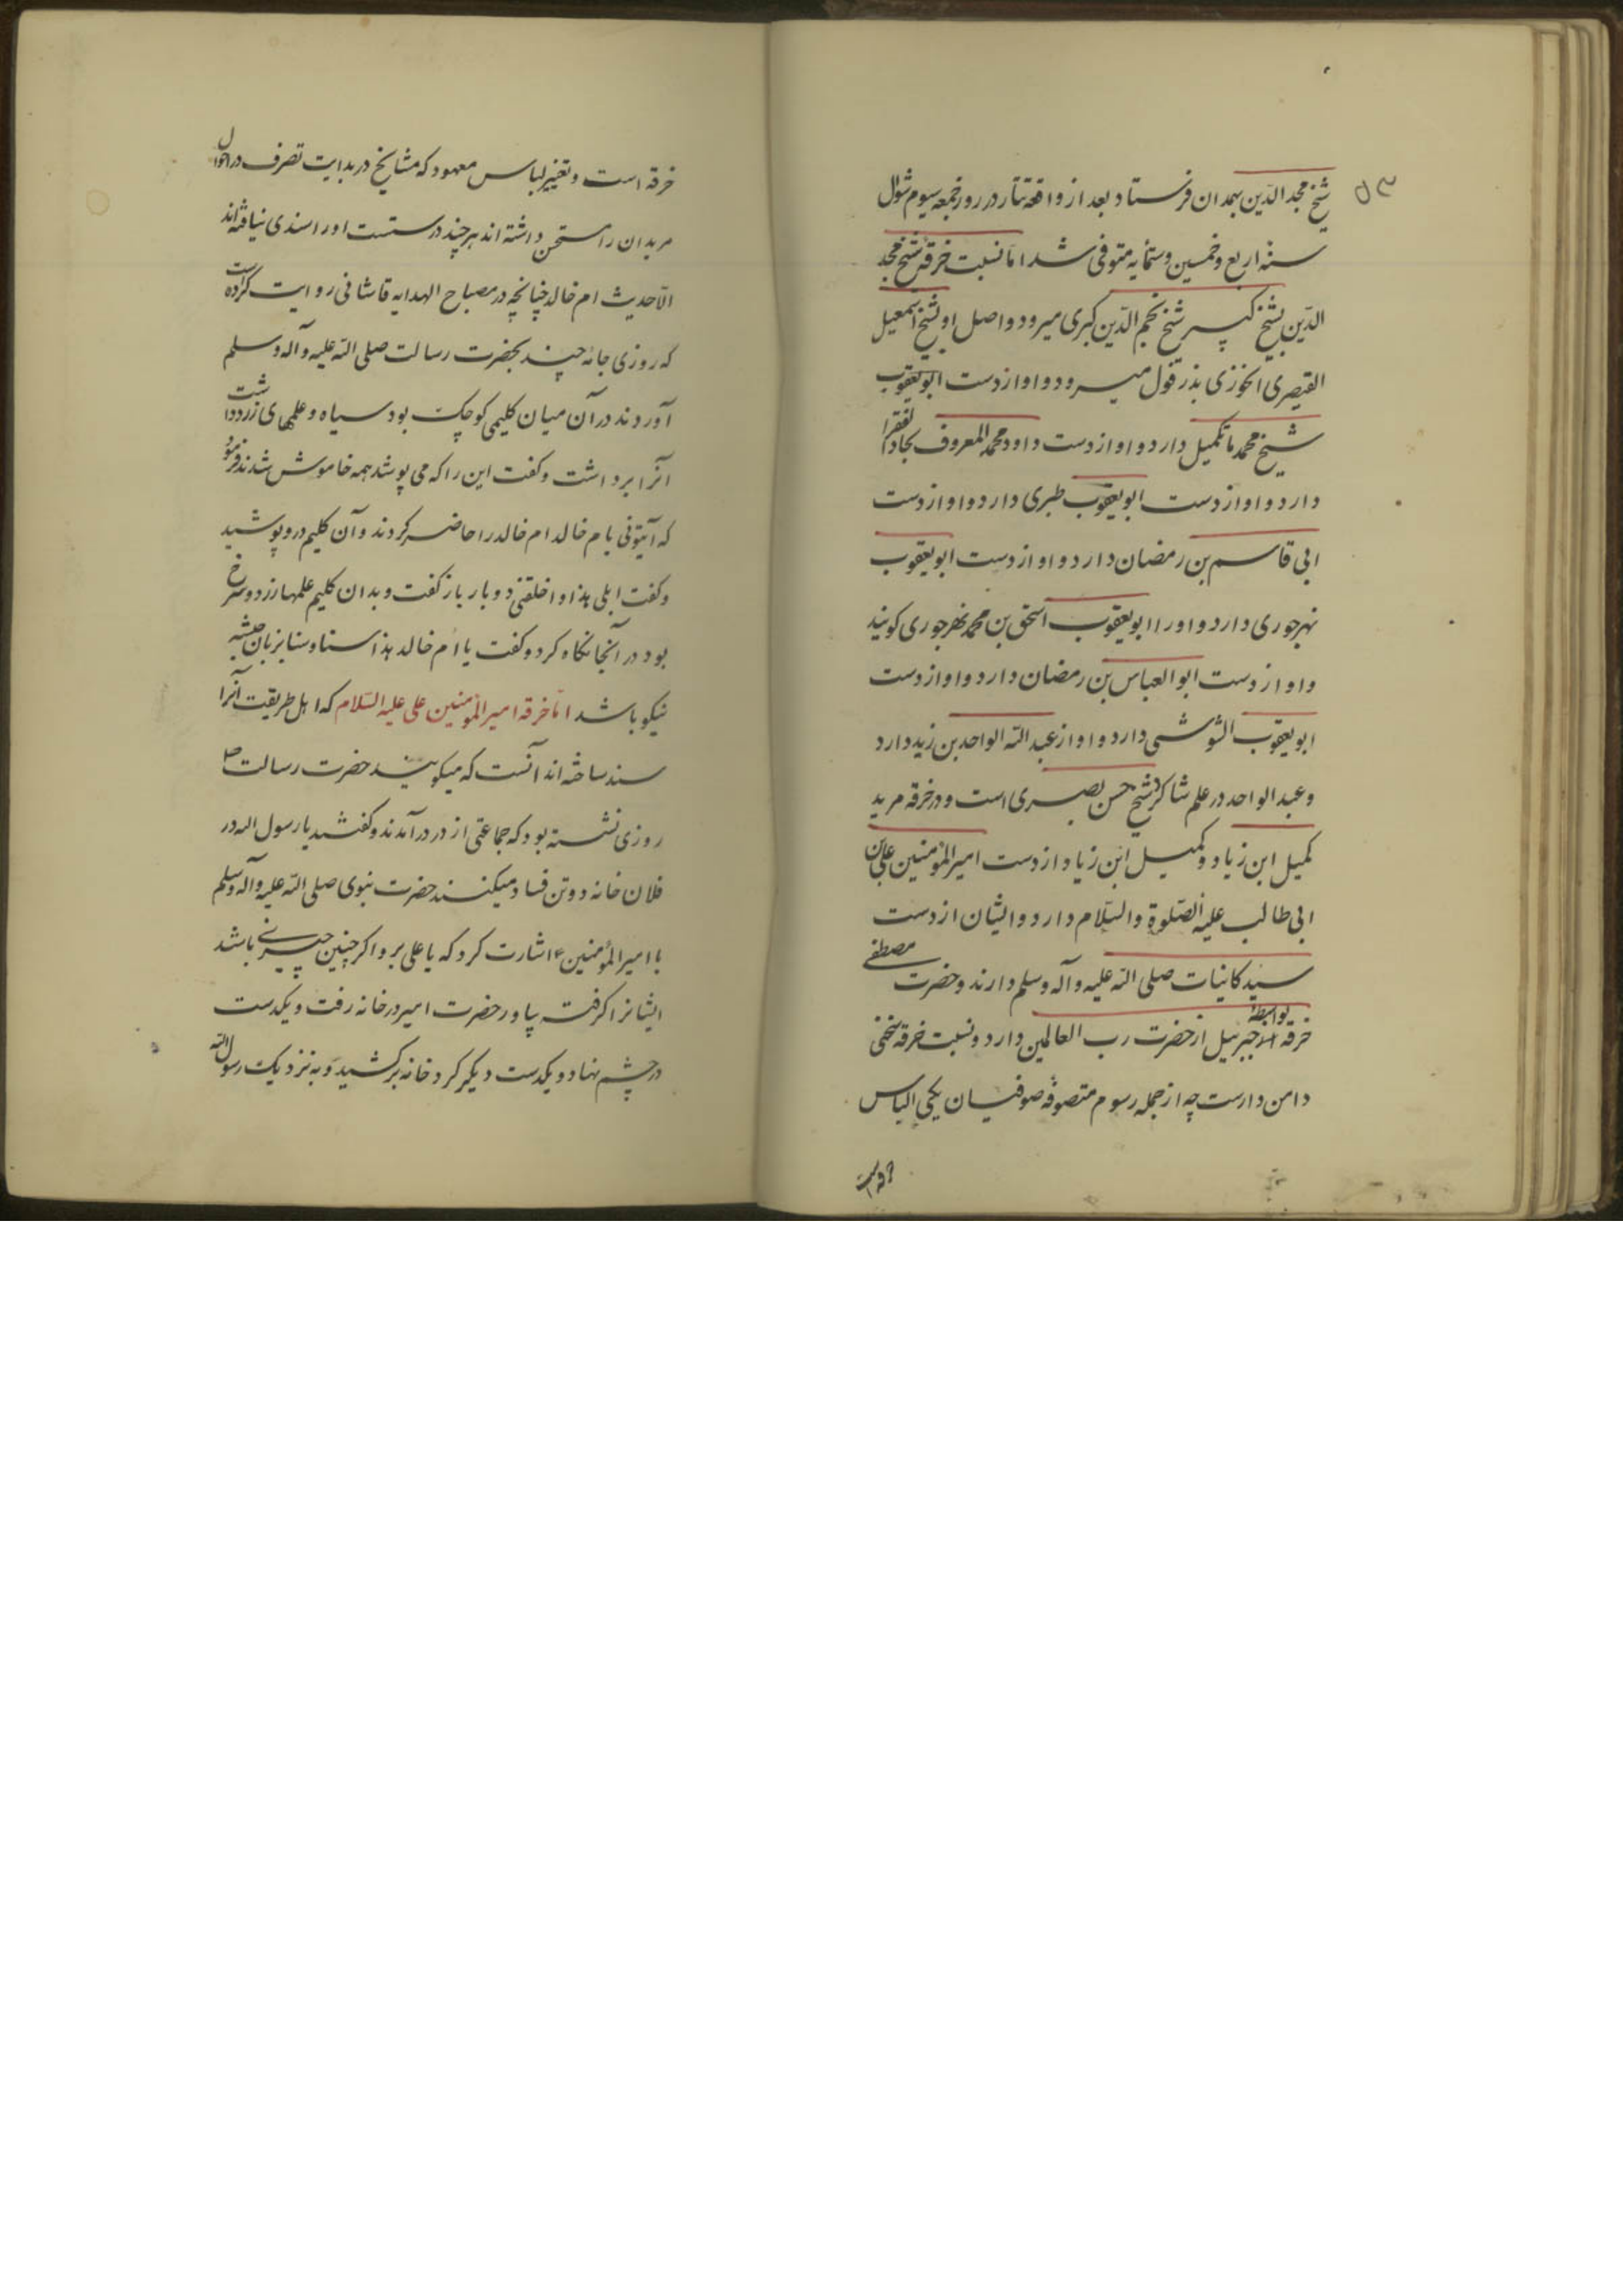 ۵۳
شیخ مجد الدّین بهمدان فرستاد بعد از واقعه تتار در روز جمعه سیوم شوال
سنه اربع و خمسین و ستمأیه متوفی شد اما نسبت خرقه شیخ مجد
الدّین بشیخ کبیر شیخ نجم الدّین کبری میرود و اصل او بشیخ اسمعیل
القیصری میرود و او از دست ابو یعقوب
شیخ محمد مانکیل دارد و او از دست داود محمد المعروف بخادم الفقرا
دارد و او از دست ابو یعقوب طبری دارد و او از دست
ابی قاسم بن رمضان دارد و او از دست ابو یعقوب
نهرجوری دارد و او را ابو یعقوب اسحق بن محمد نهرجوری کویند
و او از دست ابو العباس بن رمضان دارد و او از دست
ابو یعقوب الشوشی دارد و او از عبد الله الواحد بن زید دارد
و عبد الواحد در علم شاکرد شیخ حسن بصری است و در خرقه مرید
کمیل ابن زیاد و کمیل ابن زیاد از دست امیر المؤمنین علی بن
ابی طالب علیه الصّلوة والسّلام دارد و ایشان از دست
سیّد کاینات صلی الله علیه و آله و سلم دارند و حضرت مصطفی
خرقه بواسطهٔ جبرئیل از حضرت رب العالمین دارد و نسبت خرقه
دامن دارست چه از جمله رسوم متصوفه صوفیان یکی الباس
خرقه است و تغییر لباس معهود که مشایخ در بدایت تصرف در احوال
مریدان را مستحسن داشته اند هر چند در سنت او را سندی نیافته اند
الّا حدیث ام خالد چنانچه در مصباح الهدایه قاشانی روایت کرده است
که روزی جامهٔ چند بحضرت رسالت صلی الله علیه و آله و سلم
آوردند در آن میان کلیمی کوچک بود سیاه و علمهای زرد داشت
آنرا برداشت و کفت این را که می پوشد همه خاموش شدند فرمود
که آیتونی بام خالد ام خالد را حاضر کردند و آن کلیم درو پوشید
و کفت ابلی هذا و اخلقنی دو بار باز کفت و بدان کلیم علمها زرد و سرخ
بود در آنجا نکاه کرد و کفت یا ام خالد هذا سنا و سنا بزبان حبشه
نیکو باشد اما خرقه امیر المؤمنین علی علیه السّلام که اهل طریقت آنرا
سند ساخته اند آنست که میکویند حضرت رسالت ص
روزی نشسته بود که جماعتی از در درآمدند و کفتند یا رسول الله در
فلان خانه دو تن فساد میکنند حضرت نبوی صلی الله علیه و اله و سلم
با امیر المؤمنین ع اشارت کرد که یا علی برو اکر چنین چیزی باشد
ایشانرا کرفته بیاور حضرت امیر در خانه رفت و یکدست
در چشم نهاد و یکدست دیکر کرد خانه برکشید و به نزدیک رسول الله